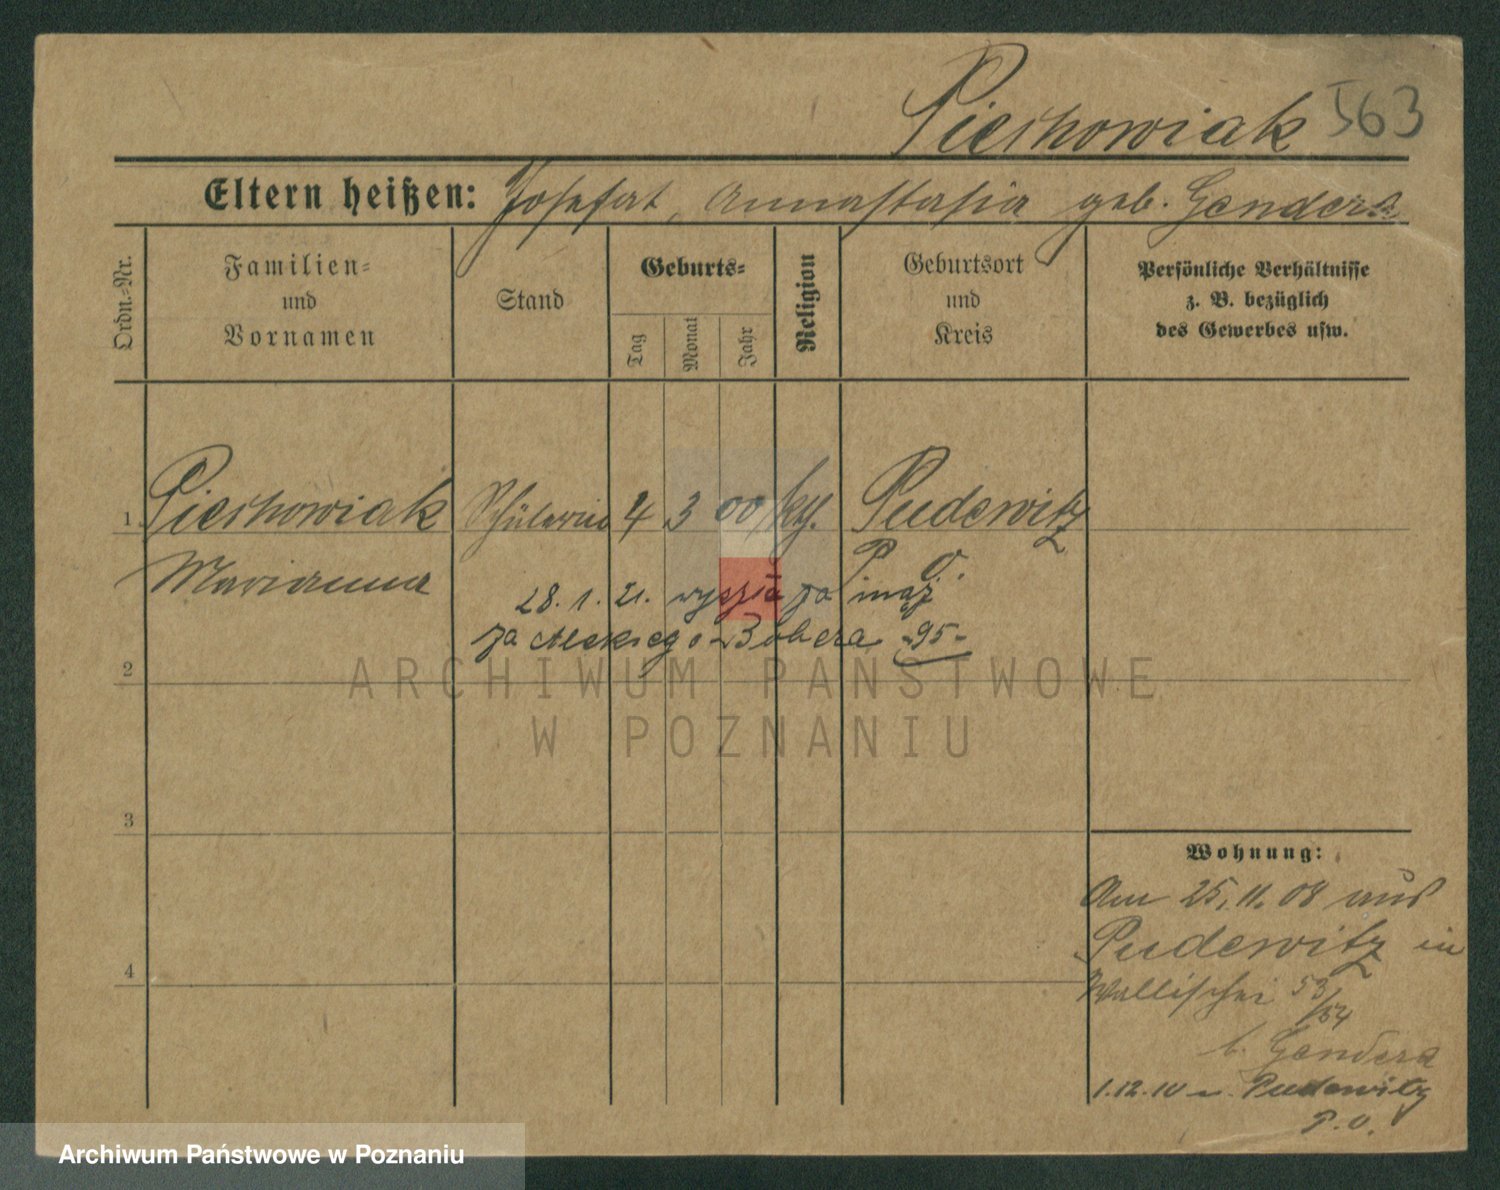 Pierhowiak 563
Eltern heißen: Josefat, Annastasia geb. Gendera
Ordn.-Nr.
Familien-
und
Vornamen
Stand
Geburts-
Tag
Monat
Jahr
Religion
Geburtsort
und
Kreis
Persönliche Verhältnisse
z. B. bezüglich
des Gewerbes usw.
1 Pierhowiak Schülerin 4 3 00 kth. Pudewitz
Marianna P. O.
28. 1. 21. wyszła za mąż
za Aleksego Bobera -95-
2
3
4
Wohnung:
Am 25. 11. 08 aus
Pudewitz in
Wallischei 53/54
b. Gendera
1.12.10 n. Pudewitz
P. O.
ARCHIWUM PAŃSTWOWE
W POZNANIU
Archiwum Państwowe w Poznaniu